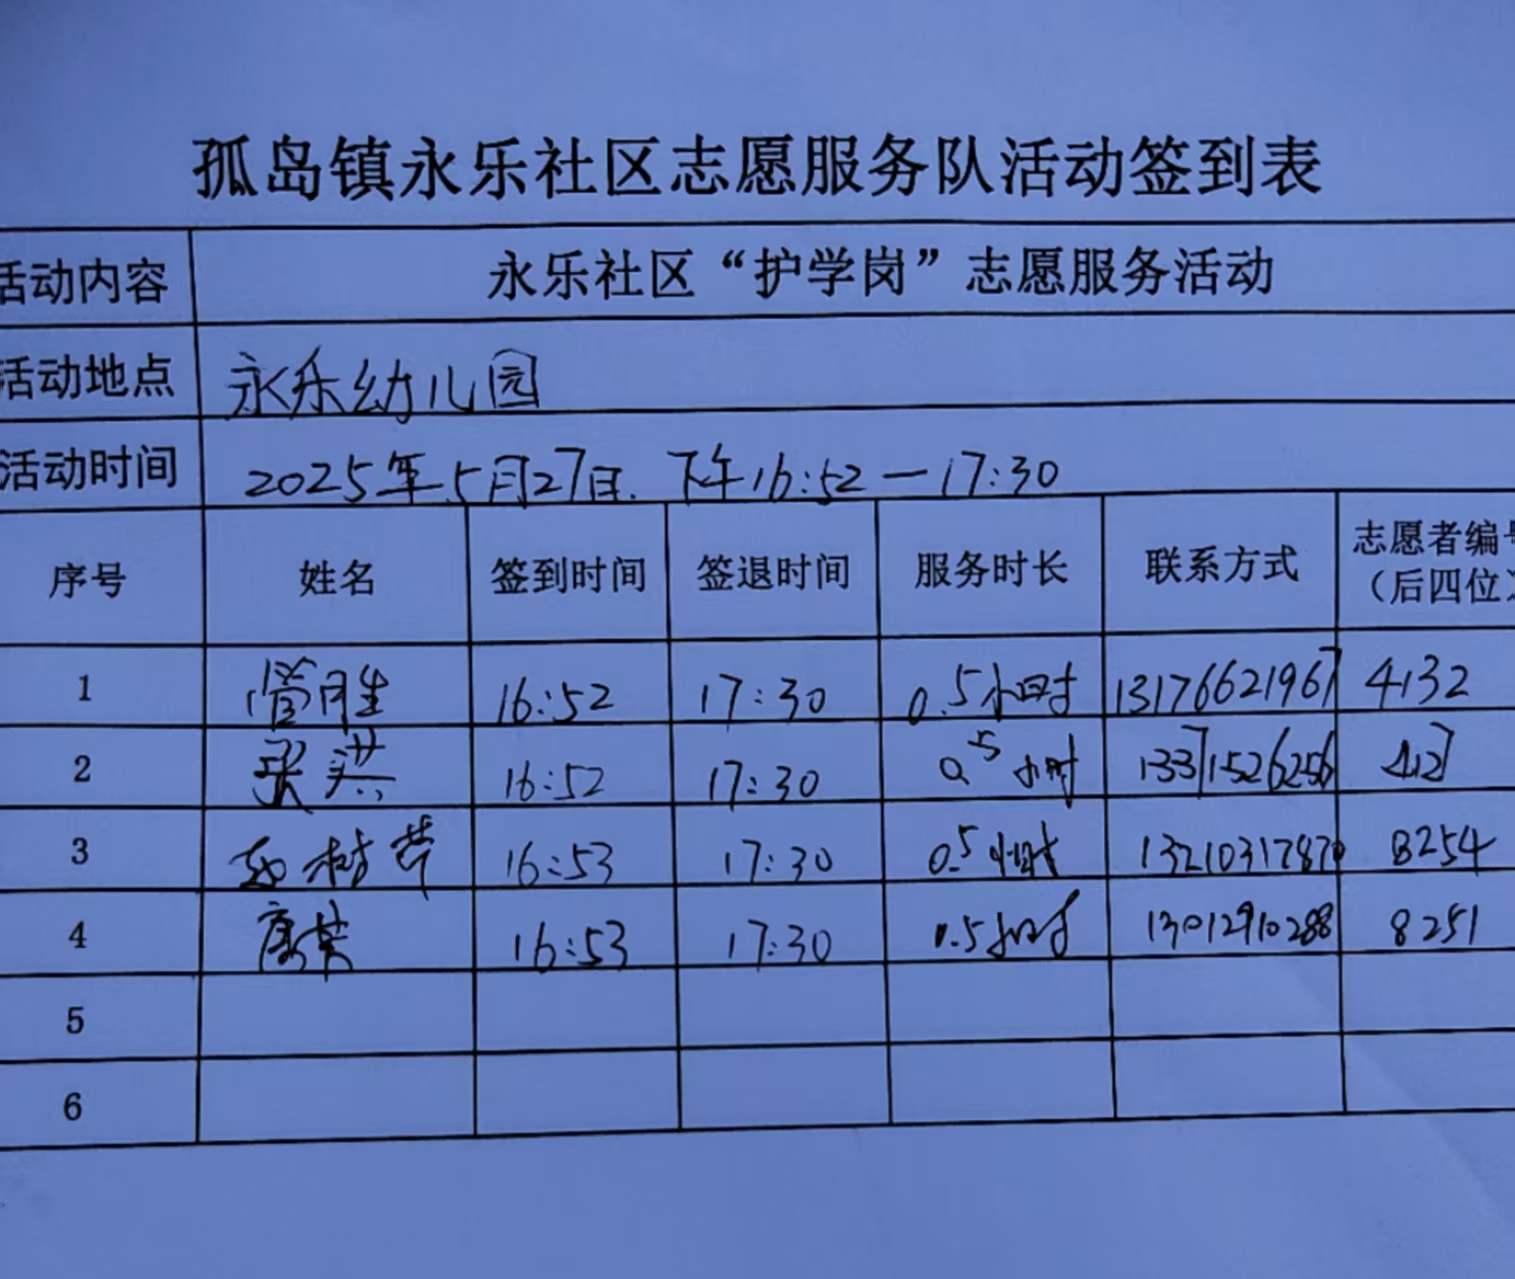 孤岛镇永乐社区志愿服务队活动签到表
活动内容 永乐社区“护学岗”志愿服务活动
活动地点 永乐幼儿园
活动时间 2025年5月27日. 下午16:52—17:30
序号 姓名 签到时间 签退时间 服务时长 联系方式 志愿者编号（后四位）
1 管胜 16:52 17:30 0.5小时 13176621967 4132
2 张洪 16:52 17:30 0.5小时 13371526256
3 16:53 17:30 0.5小时 13210317870 8254
4 16:53 17:30 0.5小时 13012910288 8251
5
6